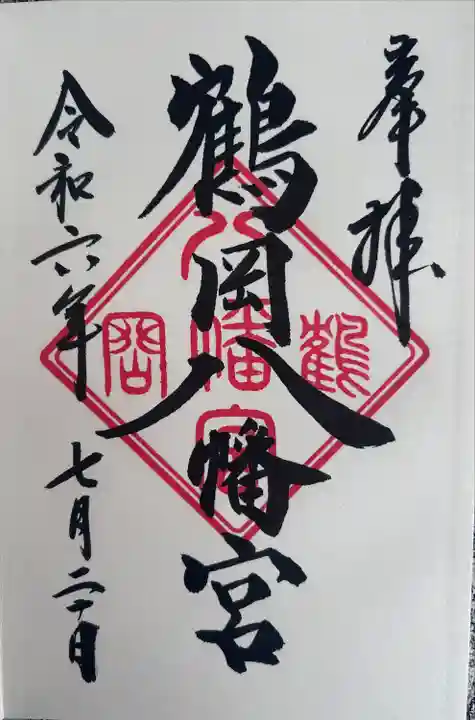 奉拝
鶴岡八幡宮
令和六年 七月二十日
鶴岡
八幡宮